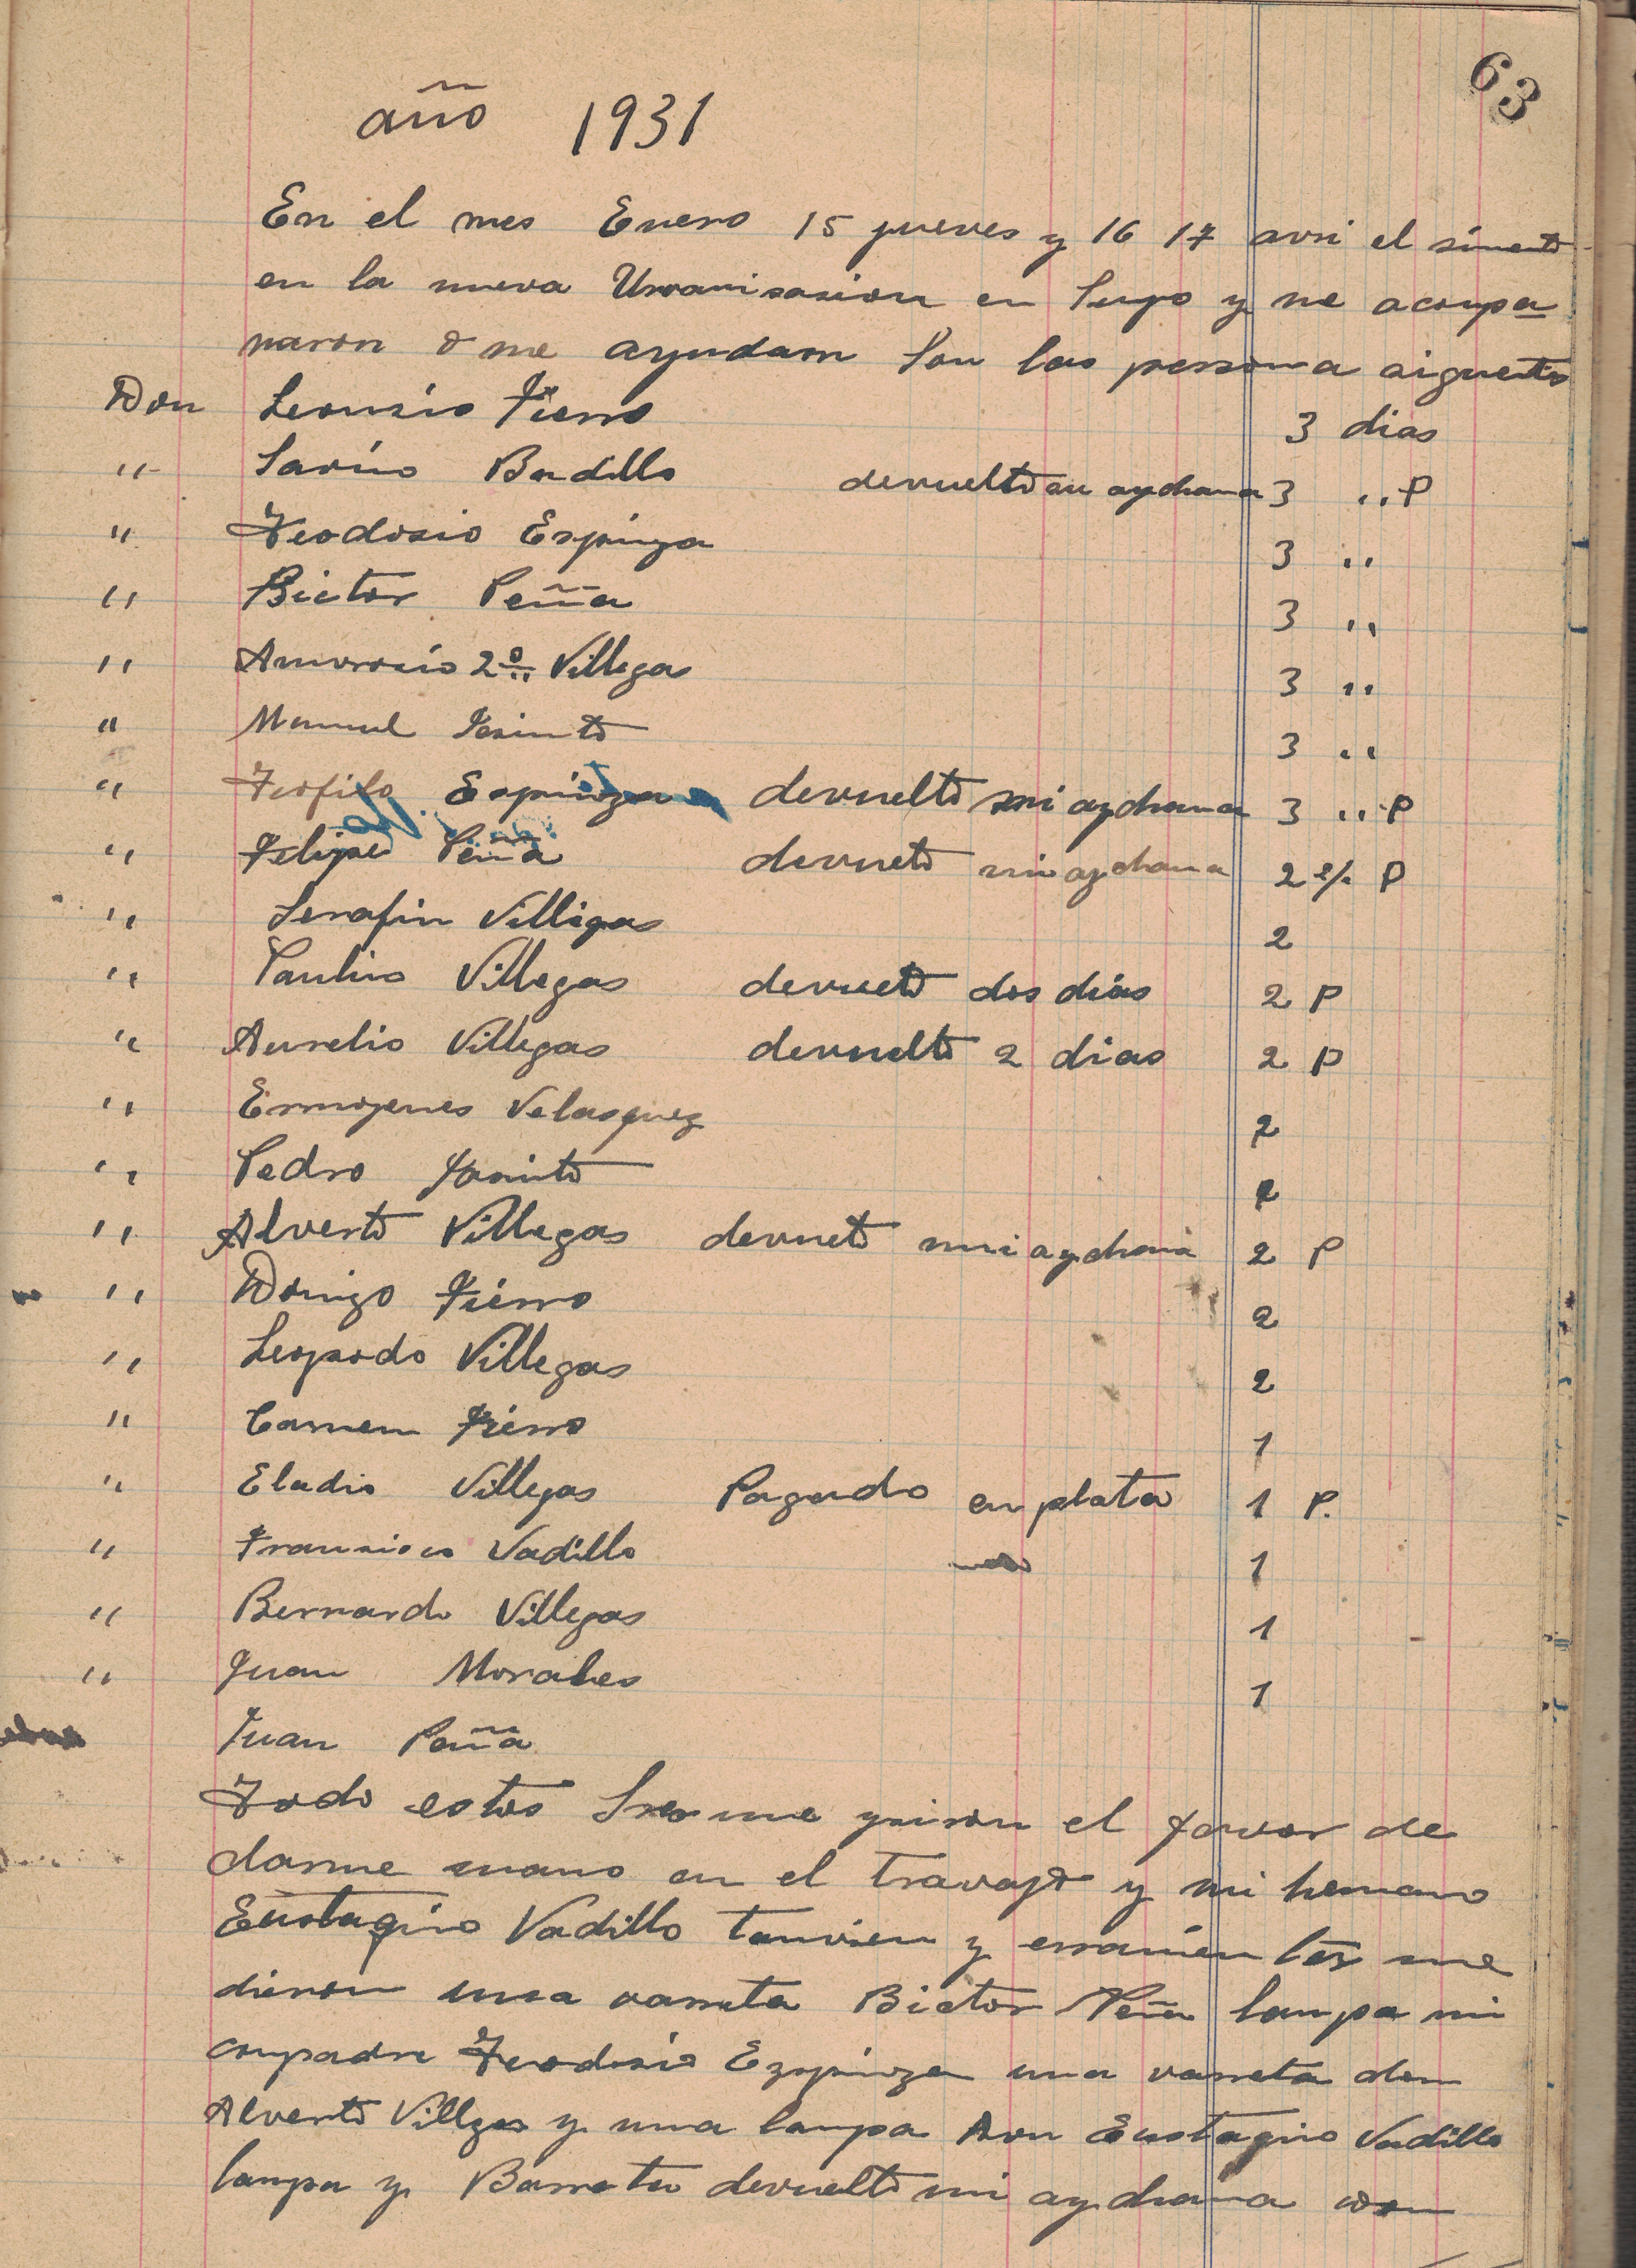 63
año 1931
En el mes Enero 15 jueves y 16 17 avri el simento
en la nueva Urvanisasion en Supo y me acompa
naron o me ayudaron son las persona siguentes
Don Leonsio Fierro 3 dias
" Savino Badillo devuelto su aychana 3 " P
" Teodosio Espinoza 3 "
" Bictor Peña 3 "
" Amvrosio 2º Villegas 3 "
" Manuel Jasinto 3 "
" Teofilo Espinoza devuelto mi aychana 3 " P
" Felipe Peña devueto mi aychana 2 P
" Serafin Villigas 2
" Paulino Villegas devueto dos dias 2 P
" Aurelio Villegas devuelto 2 dias 2 P
" Ermogenes Velasquez 2
" Pedro Jasinto 2
" Alverto Villegas devueto mi aychana 2 P
" Domigo Fierro 2
" Leopardo Villegas 2
" Carmen Fierro 1
" Eladio Villegas Pagado en plata 1 P.
" Fransisco Vadillo 1
" Bernardo Villegas 1
" Juan Morales 1
Juan Peña
Todo estos Sres me ysieron el favor de
darme mano en el travajo y mi hermano
Eustaqino Vadillo tamvien y erramientos me
dieron una varreta Bictor Peña lampa mi
conpadre Teodosio Ezpinoza una varreta don
Alverto Villgas y una lampa Don Eustaqino Vadillo
lampa y Barreta devuelto mi aychana con